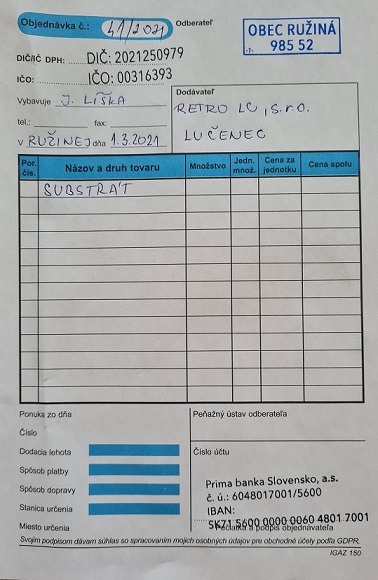 Objednávka č.: 41/2021
Odberateľ
OBEC RUŽINÁ
985 52
DIČ/IČ DPH: DIČ: 2021250979
IČO: IČO: 00316393
Vybavuje J. LÍŠKA
tel.: fax:
V RUŽINEJ dňa 1.3.2021
Dodávateľ
RETRO LC, s.r.o.
LUČENEC
Por. čís. Názov a druh tovaru Množstvo Jedn. množ. Cena za jednotku Cena spolu
SUBSTRÁT
Ponuka zo dňa
Číslo
Dodacia lehota
Spôsob platby
Spôsob dopravy
Stanica určenia
Miesto určenia
Peňažný ústav odberateľa
Číslo účtu
Prima banka Slovensko, a.s.
č. ú.: 6048017001/5600
IBAN:
SK71 5600 0000 0060 4801 7001
Pečiatka a podpis objednávateľa
Svojim podpisom dávam súhlas so spracovaním mojich osobných údajov pre obchodné účely podľa GDPR.
IGAZ 150